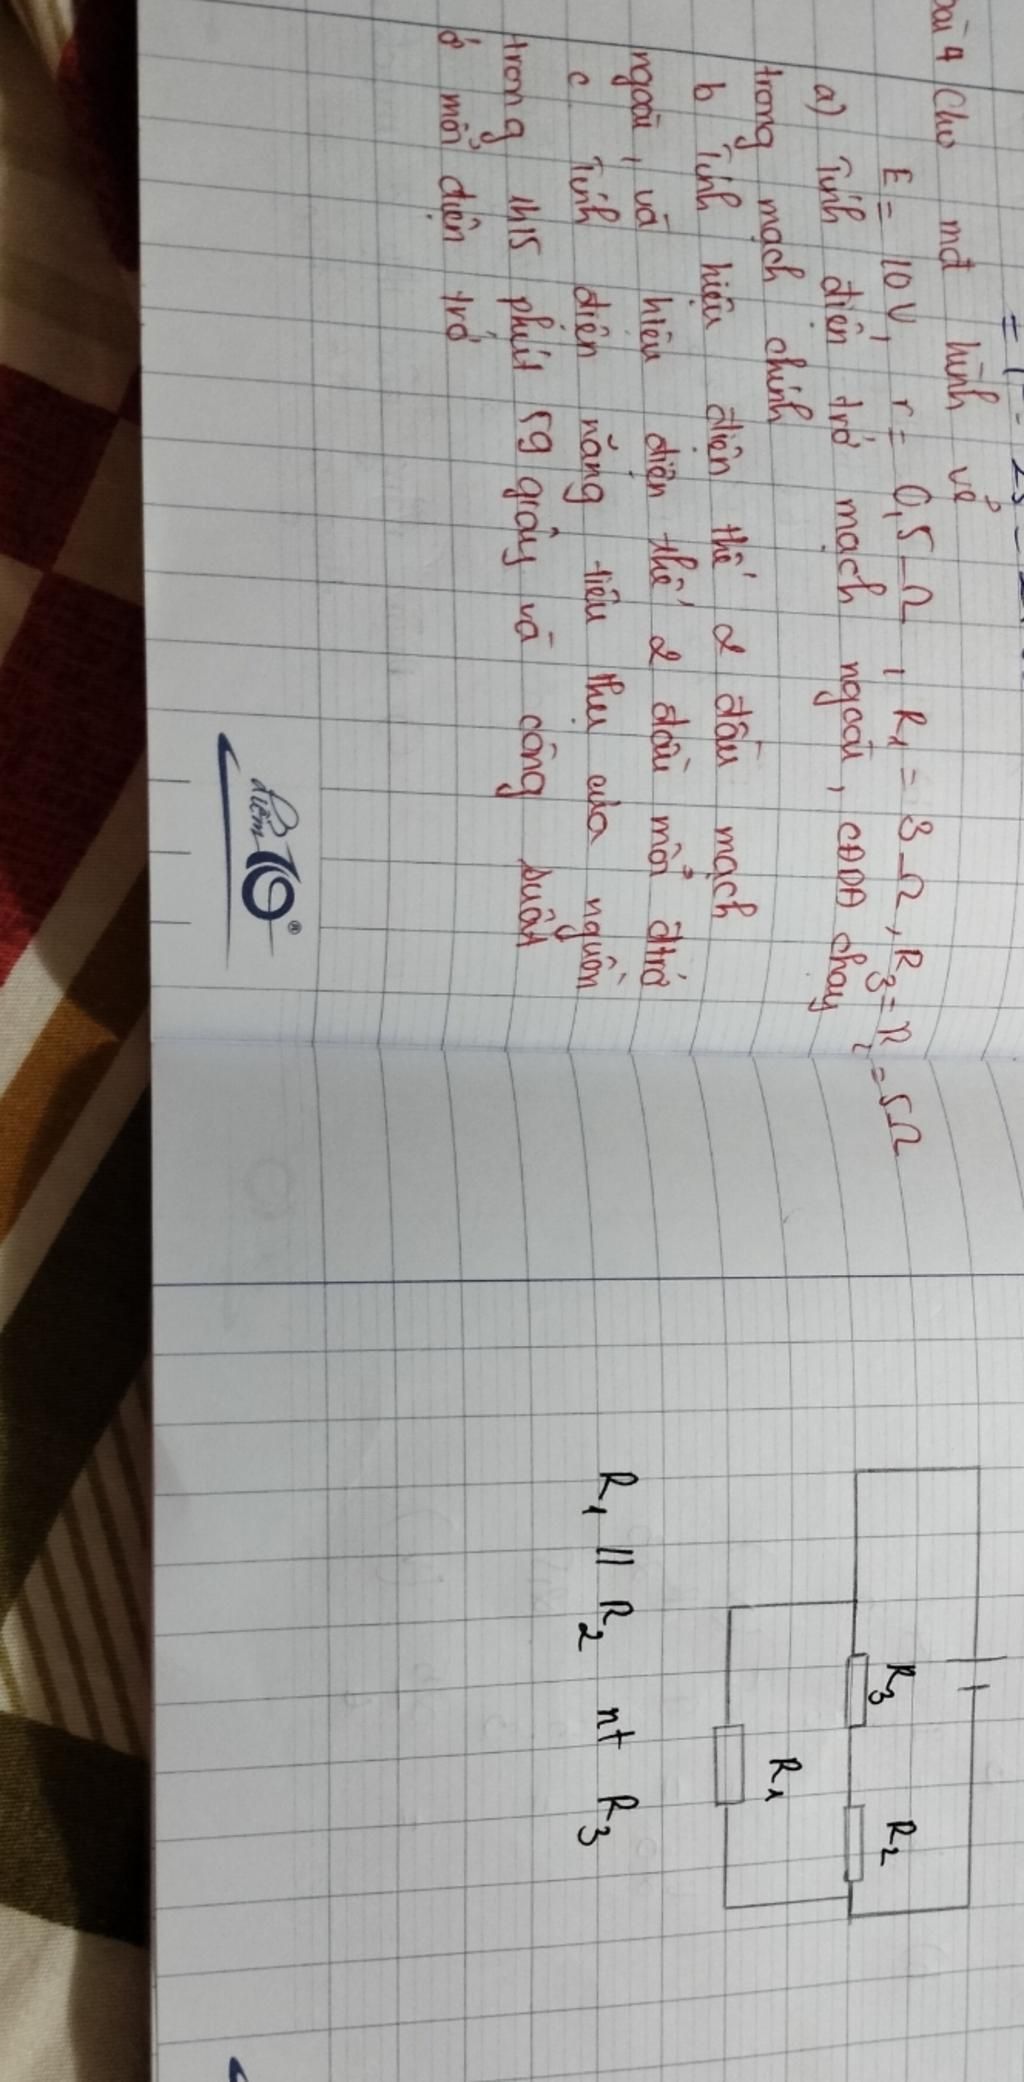 Bài 4 Cho mđ hình vẽ
E = 10V, r = 0,5Ω, R1 = 3Ω, R3 = R2 = 5Ω
a) Tính điện trở mạch ngoài, CĐDĐ chạy
trong mạch chính
b Tính hiệu điện thế 2 đầu mạch
ngoài, và hiệu điện thế 2 đầu mỗi đtrở
c Tính điện năng tiêu thụ của nguồn
trong 1h15 phút 59 giây và công suất
ở mỗi điện trở
điểm 10 ®
R3
R2
R1
R1 // R2 nt R3